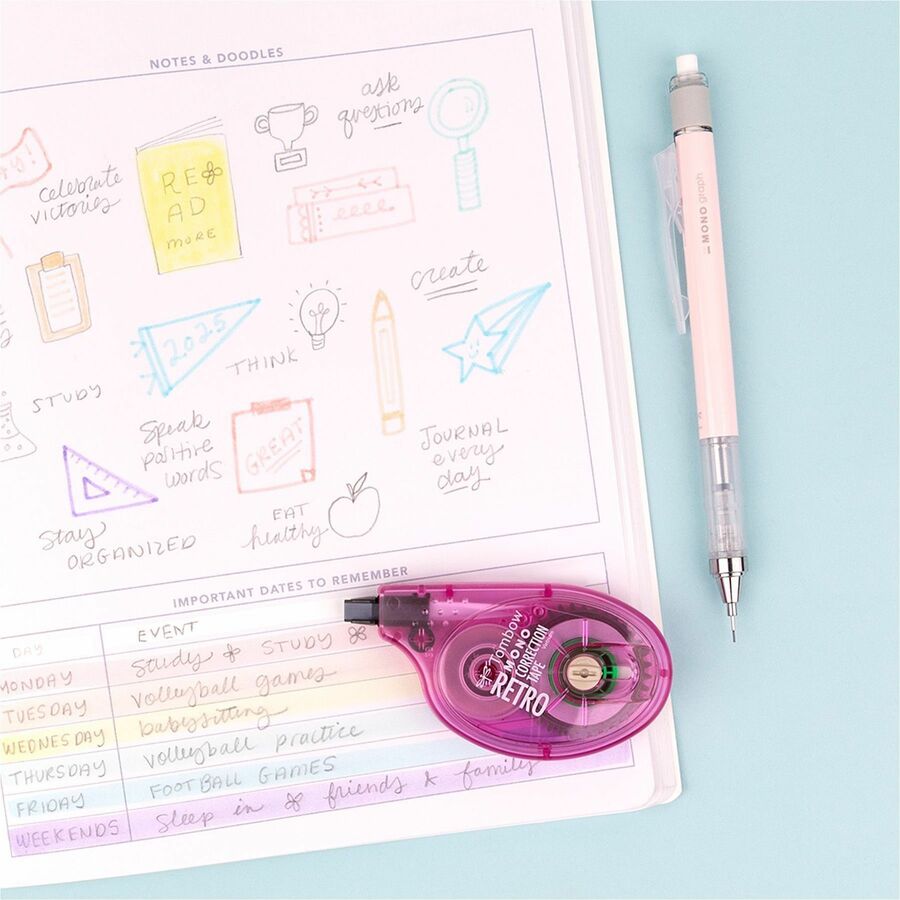 NOTES & DOODLES
ask
questions
celebrate
victories
RE
AD
MORE
create
2025
THINK
STUDY
Speak
positive
words
GREAT
JOURNAL
every
day
Stay
ORGANIZED
EAT
healthy
IMPORTANT DATES TO REMEMBER
DAY EVENT
MONDAY Study STUDY
TUESDAY volleyball games
WEDNESDAY babysitting
THURSDAY volleyball practice
FRIDAY FOOTBALL GAMES
WEEKENDS Sleep in friends & family
Tombow
MONO
CORRECTION
TAPE
RETRO
MONO graph